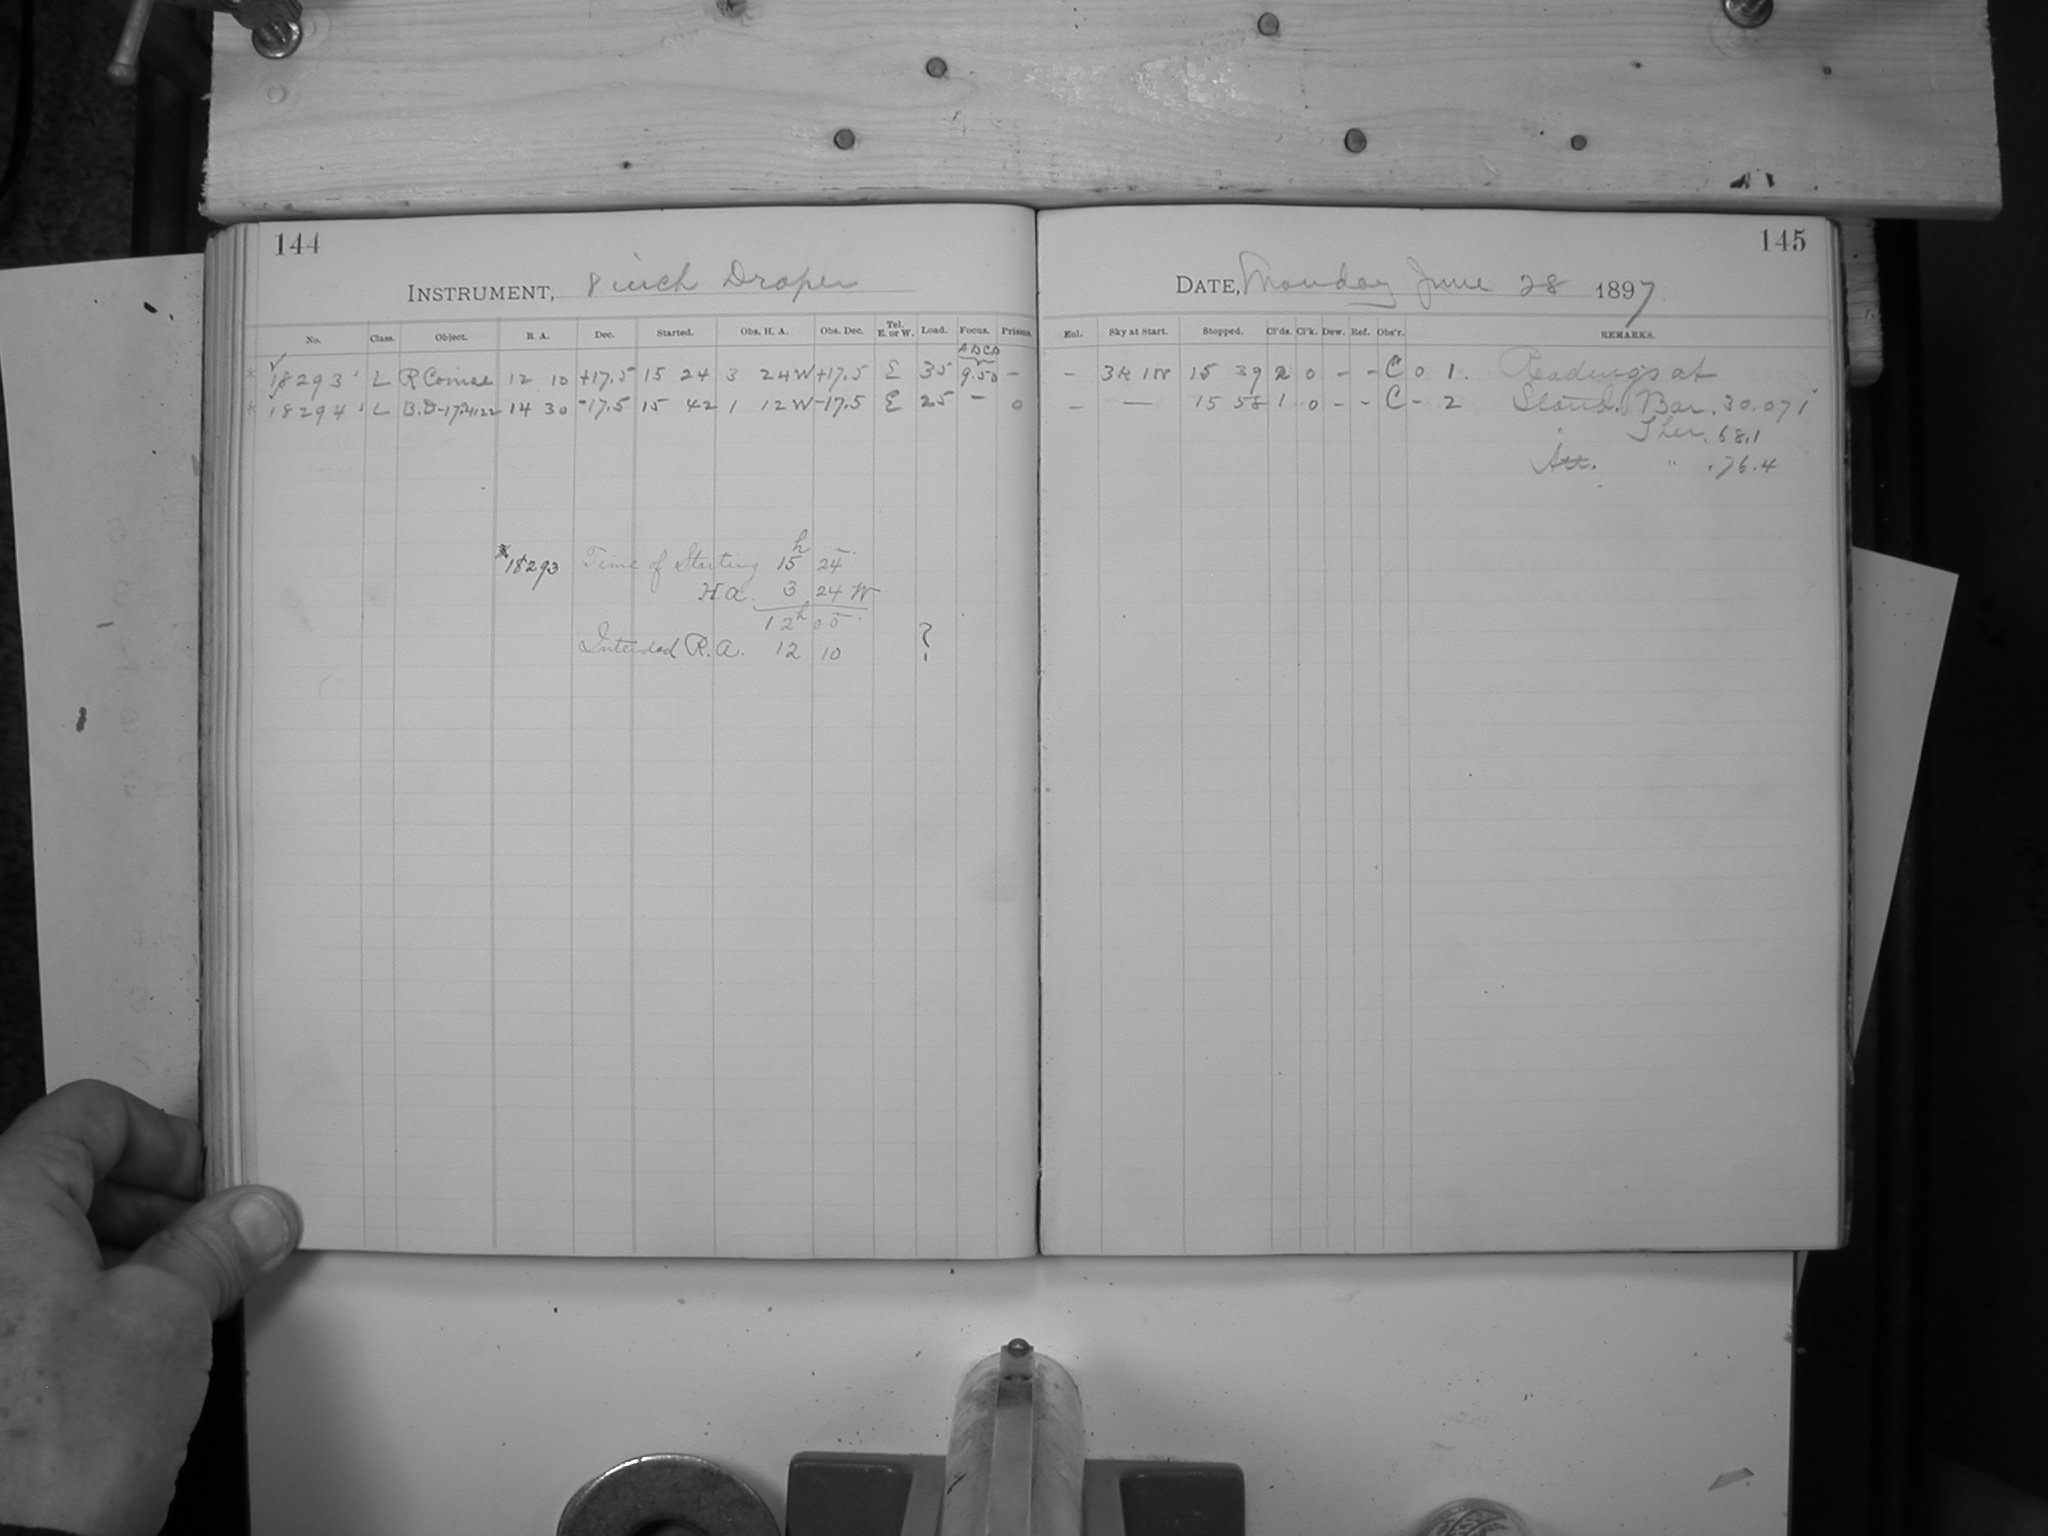 144
INSTRUMENT, 8 inch Draper
No. Class. Object. R A. Dec. Started. Obs. H. A. Obs. Dec. Tel. E. or W. Load. Focus. Prisms.
A B C D
* 18293 L R Comae 12 10 +17.5 15 24 3 24 W +17.5 E 35 9.50 –
* 18294 L B.D-17°4122 14 30 -17.5 15 42 1 12 W -17.5 E 25 – 0
* 18293 Time of Starting 15h 24
H a. 3 24 W
12h 00
Intended R.A. 12 10 ?
145
DATE, Monday June 28 1897
Enl. Sky at Start. Stopped. Cl'ds. Cl'k. Dew. Ref. Obs'r. REMARKS.
– 15 39 2 0 – – C 0 1. Readings at
– — 15 58 1 0 – – C – 2 Stand. Bar. 30.071
Ther. 68.1
Att. " .76.4